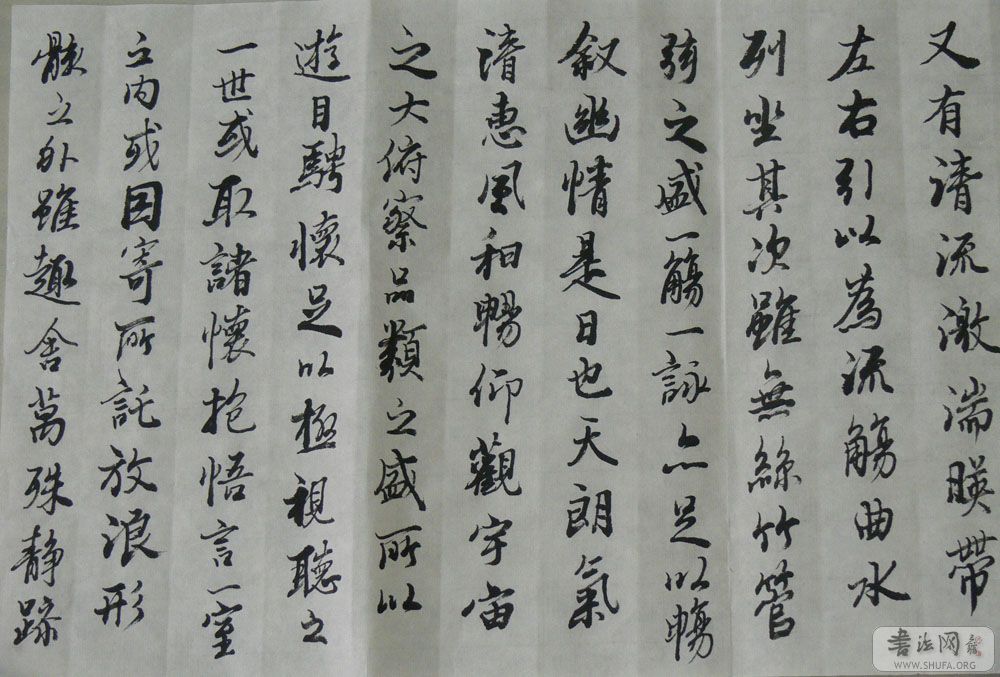 又有清流激湍暎帶
左右引以為流觴曲水
列坐其次雖無絲竹管
弦之盛一觴一詠亦足以暢
叙幽情是日也天朗氣
清惠風和暢仰觀宇宙
之大俯察品類之盛所以
遊目騁懷足以極視聽之
一世或取諸懷抱悟言一室
之内或因寄所託放浪形
骸之外雖趣舍萬殊静躁
書法网
WWW.SHUFA.ORG